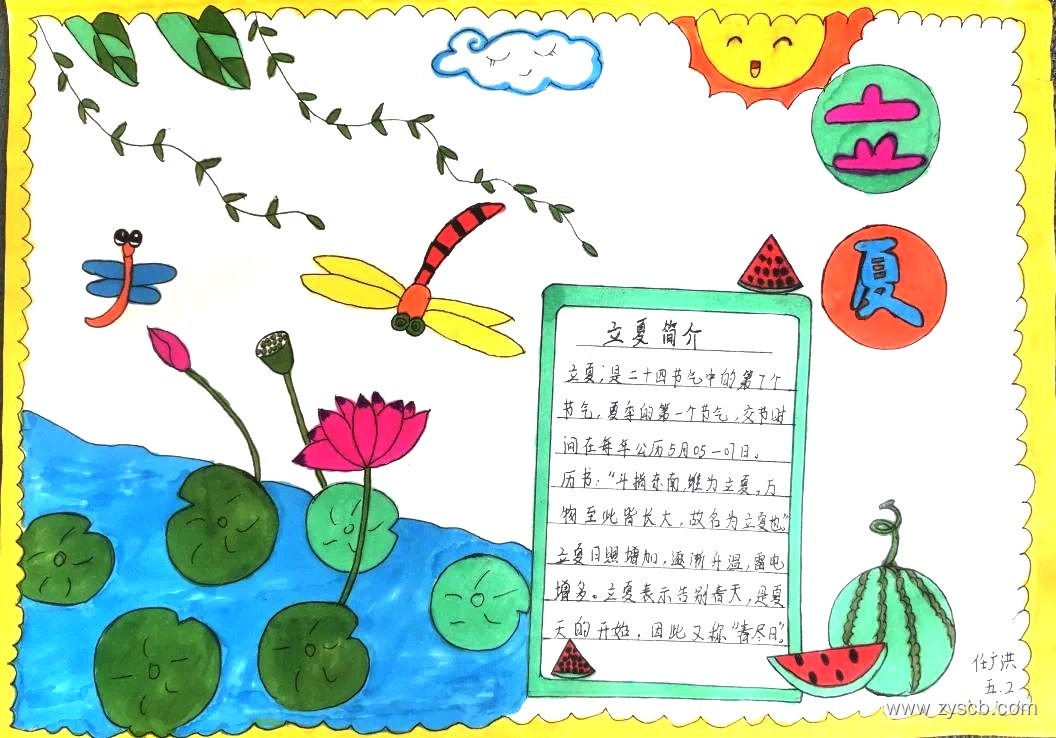 立
夏
立夏简介
立夏,是二十四节气中的第7个
节气,夏季的第一个节气,交节时
间在每年公历5月05—07日。
历书:“斗指东南,维为立夏,万
物至此皆长大,故名为立夏也”。
立夏日照增加,逐渐升温,雷电
增多。立夏表示告别春天,是夏
天的开始,因此又称“春尽日”。
任广洪
五.2
www.zyscb.com